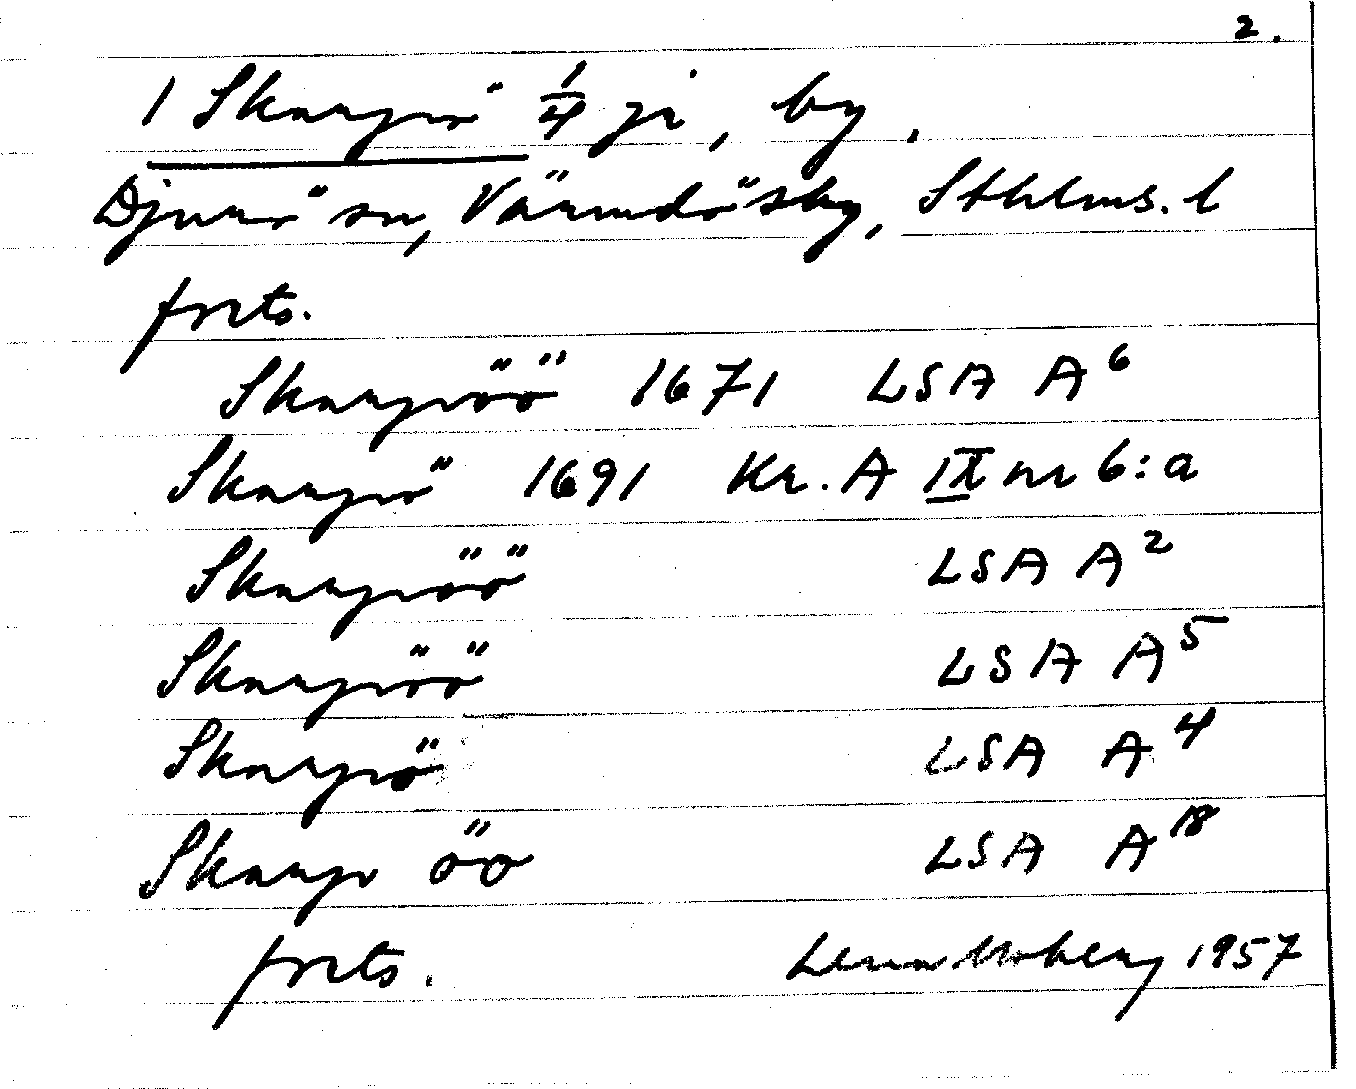 2.
1 Skarpö 1/4 ji, by,
Djurö sn, Värmdö sky, Sthlms. l
forts.
Skarpöö 1671 LSA A⁶
Skarpö 1691 Kr. A IX nr 6:a
Skarpöö LSA A²
Skarpöö LSA A⁵
Skarpö LSA A⁴
Skarp öo LSA A¹⁸
forts. Lena Moberg 1957